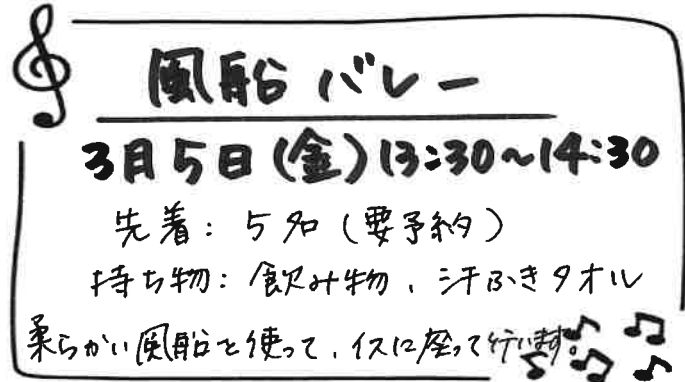 風船バレー
3月5日(金)13:30~14:30
先着:5名(要予約)
持ち物:飲み物、汗ふきタオル
柔らかい風船を使って、イスに座って行います。